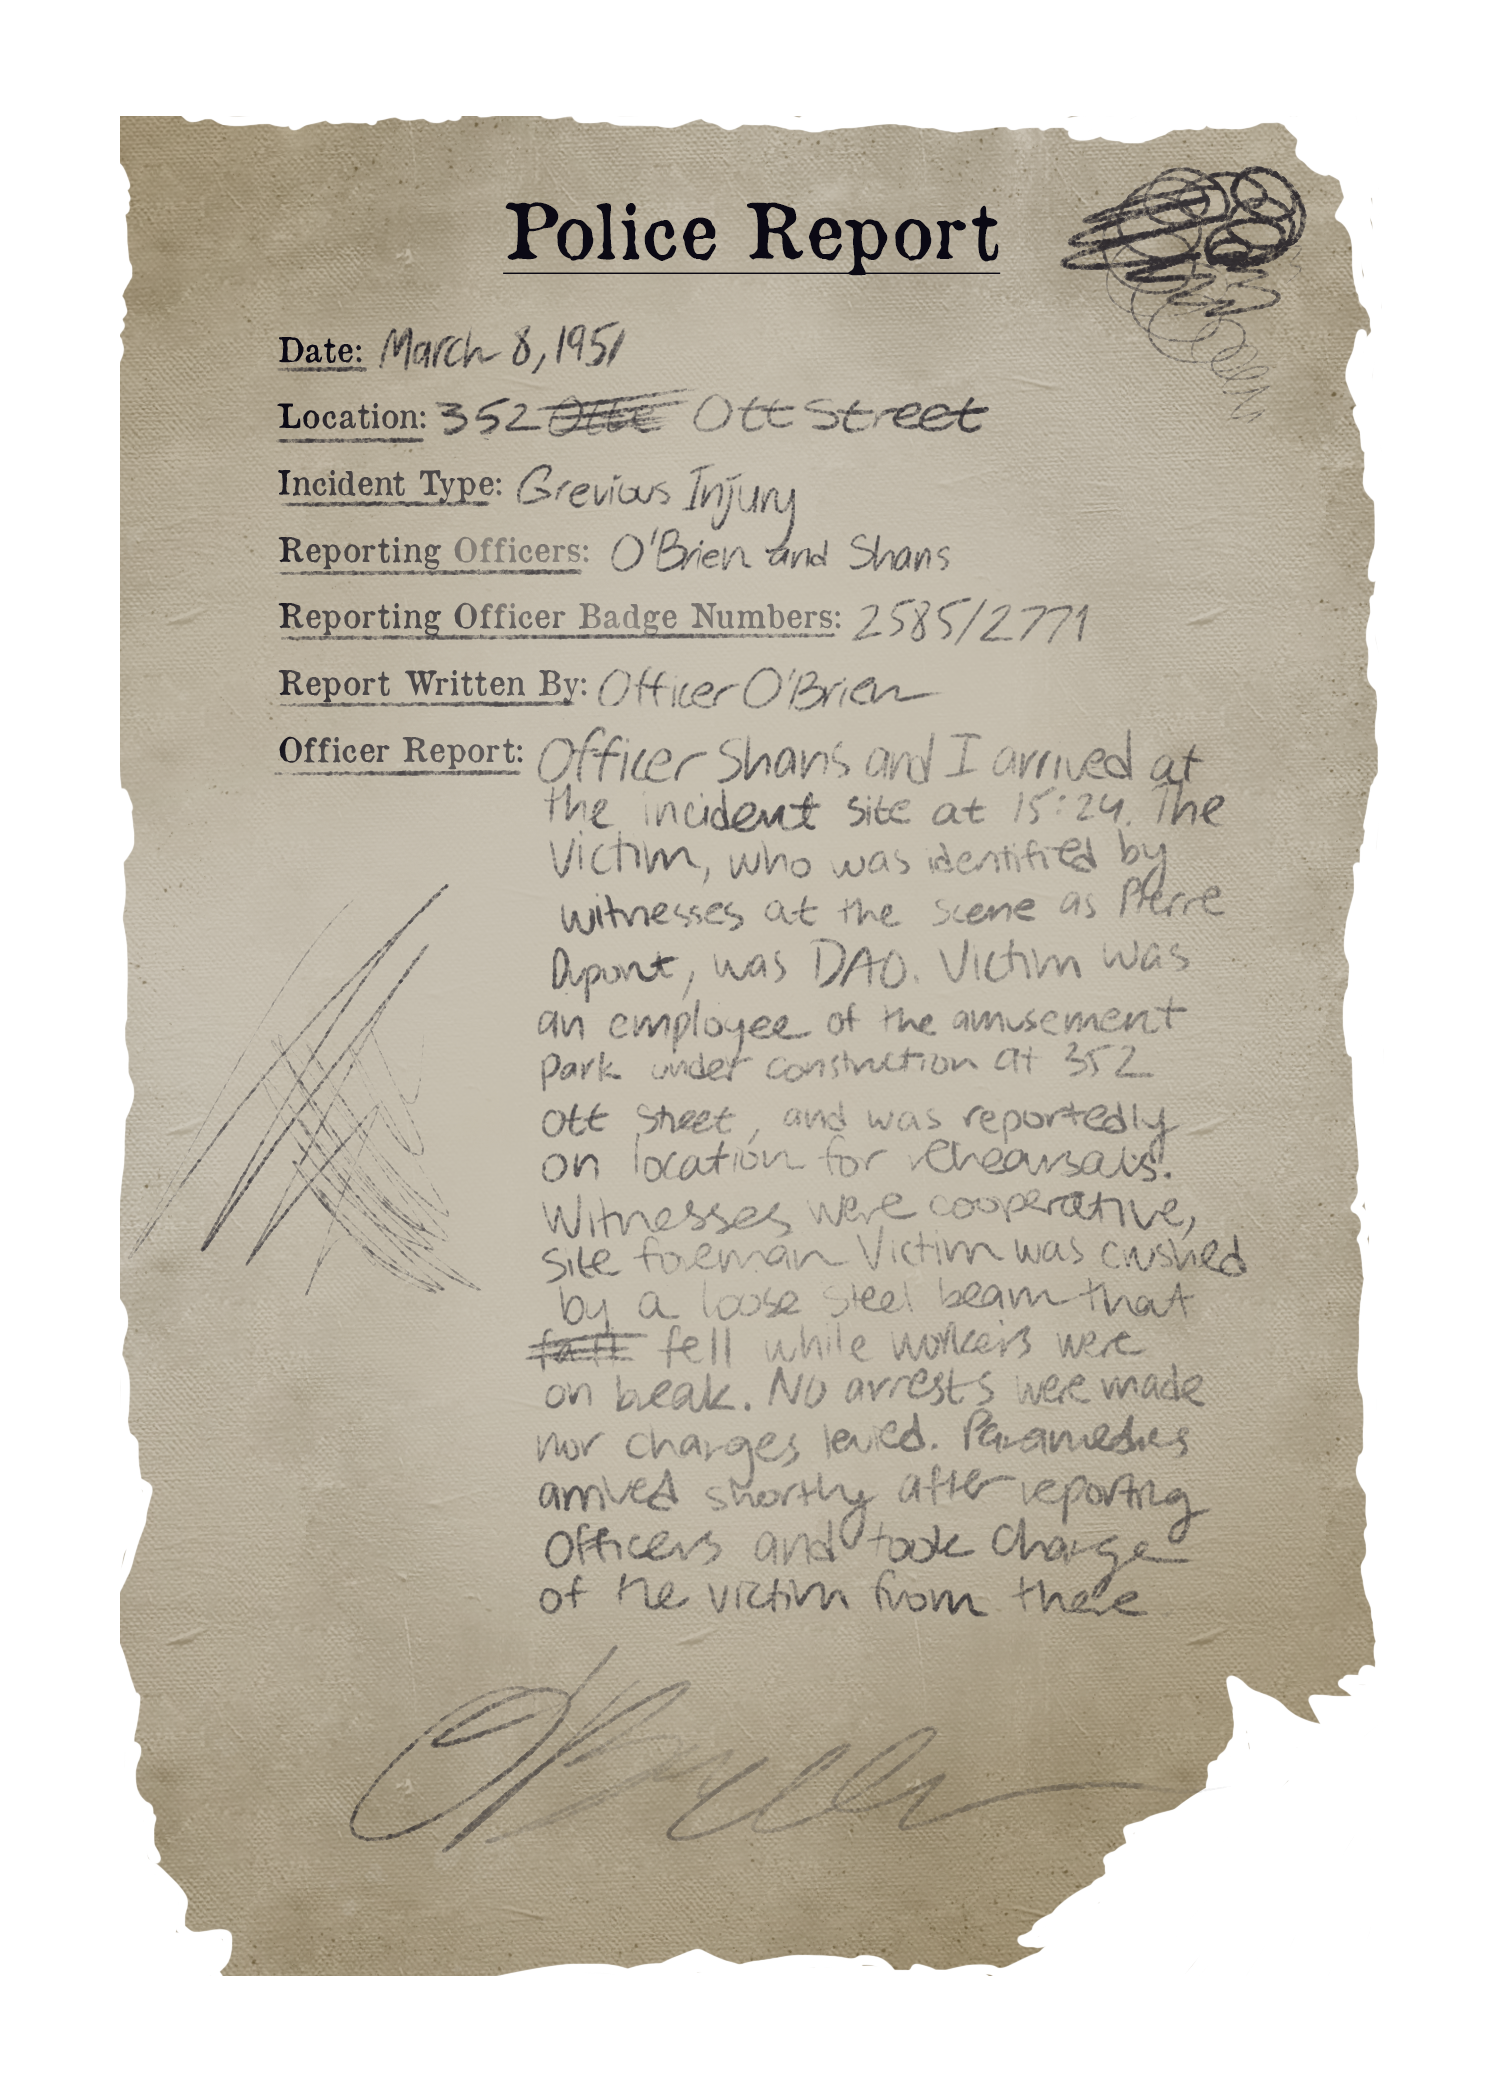 Police Report
Date: March 8, 1951
Location: 352 Ott Street
Incident Type: Grevious Injury
Reporting Officers: O'Brien and Shans
Reporting Officer Badge Numbers: 2585/2771
Report Written By: Officer O'Brien
Officer Report: Officer Shans and I arrived at
the incident site at 15:24. The
Victim, who was identified by
witnesses at the scene as Pierre
Dupont, was DAO. Victim was
an employee of the amusement
park under construction at 352
Ott Street, and was reportedly
on location for rehearsals.
Witnesses were cooperative,
site foreman Victim was crushed
by a loose steel beam that
fell while workers were
on break. No arrests were made
nor charges levied. Paramedics
arrived shortly after reporting
Officers and took charge
of the victim from there
O'Brien